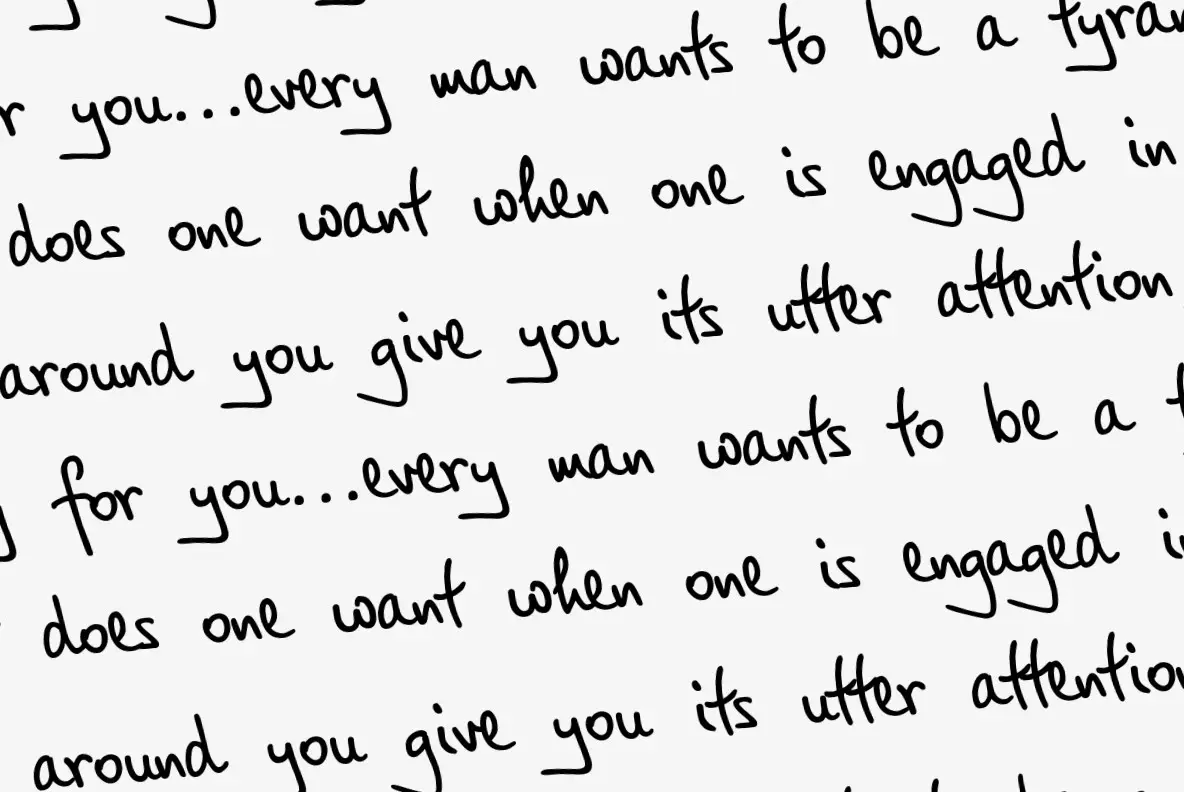 r you...every man wants to be a tyran
does one want when one is engaged in
around you give you its utter attention
for you...every man wants to be a
does one want when one is engaged i
around you give you its utter attention